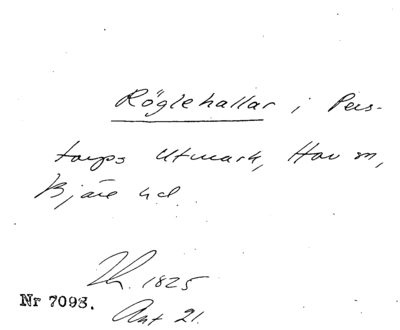 Röglehallar i Pers-
torps Utmark, Hov sn,
Bjäre hd.
1825
Nr 7098.
Ant 21.